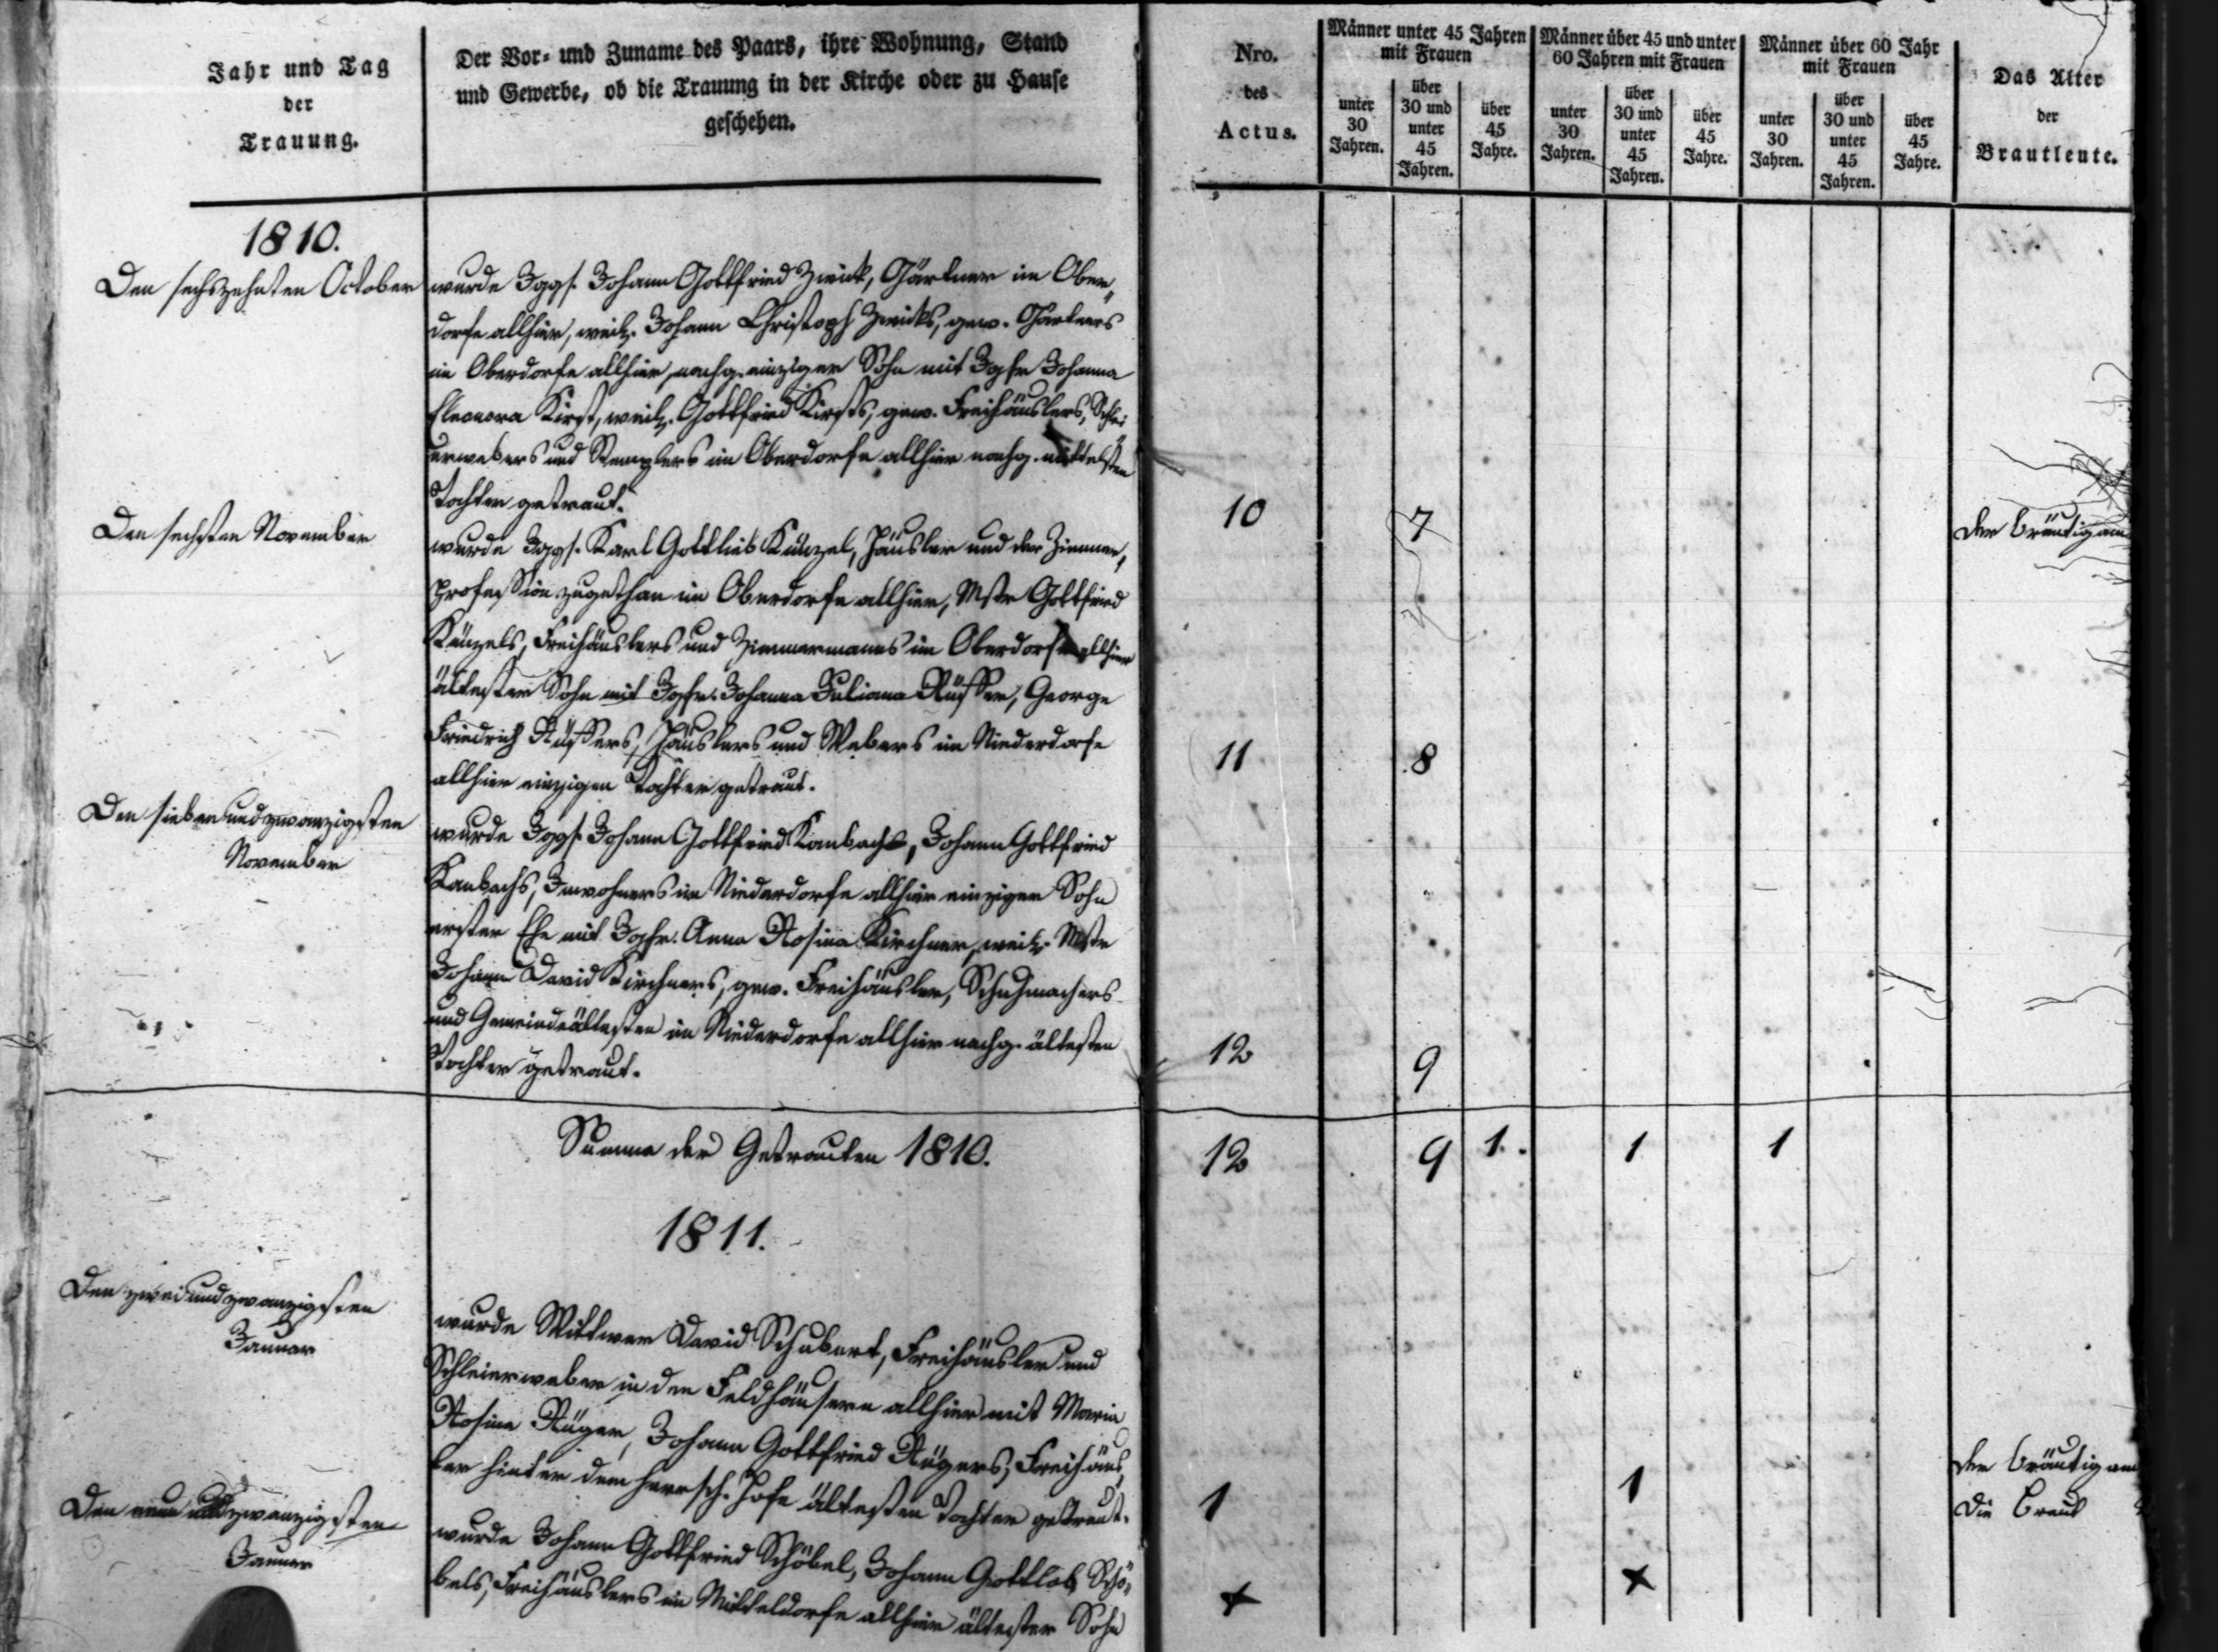 Jahr und Tag
der
Trauung.
Der Vor- und Zuname des Paars, ihre Wohnung, Stand
und Gewerbe, ob die Trauung in der Kirche oder zu Hause
geschehen.
Nro.
des
Actus.
Männer unter 45 Jahren
mit Frauen
unter
30
Jahren.
über
30 und
unter
45
Jahren.
über
45
Jahre.
Männer über 45 und unter
60 Jahren mit Frauen
unter
30
Jahren.
über
30 und
unter
45
Jahren.
über
45
Jahre.
Männer über 60 Jahr
mit Frauen
unter
30
Jahren.
über
30 und
unter
45
Jahren.
über
45
Jahre.
Das Alter
der
Brautleute.
1810.
Den sechszehnten October
wurde Jggs. Johann Gottfried Zwick, Gärtner im Ober-
dorfe allhier, weil. Johann Christoph Zwicks, gew. Gärtners
im Oberdorfe allhier, nachg. einziger Sohn mit Jgfr Johanna
Eleonora Kirst, weil. Gottfried Kirsts, gew. Freihäuslers, Schlei-
erwebers und Stemplers im Oberdorfe allhier nachg. mittelsten
Tochter getraut.
10 7
Der Bräutigam
Den sechsten November
wurde Jggs. Karl Gottlieb Künzel, Häusler und der Zimmer-
profession zugethan im Oberdorfe allhier, Mstr Gottfried
Künzels, Freihäuslers und Zimmermanns im Oberdorfe allhier
ältester Sohn mit Jgfr. Johanna Juliana Rüffer, George
Friedrich Rüffers, Häuslers und Webers im Niederdorfe
allhier einzigen Tochter getraut.
11 8
Den siebenundzwanzigsten
November
wurde Jggs. Johann Gottfried Kanbach, Johann Gottfried
Kanbachs, Inwohners im Niederdorfe allhier einziger Sohn
erster Ehe mit Jgfr. Anna Rosina Kirchner, weil. Mstr
Johann David Kirchners, gew. Freihäusler, Schuhmachers
und Gemeindeältesten im Niederdorfe allhier nachg. ältesten
Tochter getraut.
12 9
Summa der Getrauten 1810.
12 9 1. 1 1
1811.
Den zweiundzwanzigsten
Januar
wurde Wittwer David Schubert, Freihäusler und
Schleierweber in den Feldhäusern allhier mit Maria
Rosina Rüger, Johann Gottfried Rügers, Freihäus-
ler hinter dem herrsch. Hofe ältesten Tochter getraut.
1 1
Der Bräutigam
Die Braut
Den neunundzwanzigsten
Januar
wurde Johann Gottfried Schöbel, Johann Gottlob Schö-
bels, Freihäuslers im Mitteldorfe allhier ältester Sohn
+ +